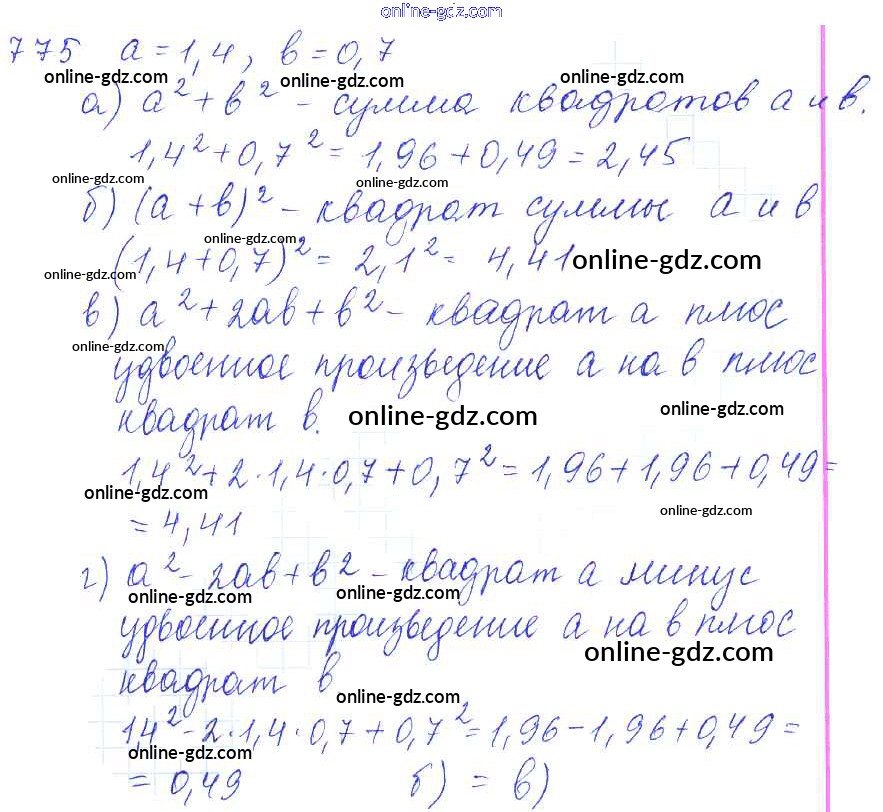 online-gdz.com
775 a = 1,4, b = 0,7
online-gdz.com online-gdz.com online-gdz.com
а) a² + b² - сумма квадратов a и b.
1,4² + 0,7² = 1,96 + 0,49 = 2,45
online-gdz.com online-gdz.com
б) (a + b)² - квадрат суммы a и b
online-gdz.com
(1,4 + 0,7)² = 2,1² = 4,41 online-gdz.com
online-gdz.com
в) a² + 2ab + b² - квадрат a плюс
online-gdz.com
удвоенное произведение a на b плюс
квадрат b. online-gdz.com online-gdz.com
1,4² + 2·1,4·0,7 + 0,7² = 1,96 + 1,96 + 0,49 =
online-gdz.com
= 4,41 online-gdz.com
г) a² - 2ab + b² - квадрат a минус
online-gdz.com online-gdz.com
удвоенное произведение a на b плюс
online-gdz.com
квадрат b
online-gdz.com
1,4² - 2·1,4·0,7 + 0,7² = 1,96 - 1,96 + 0,49 =
online-gdz.com online-gdz.com
= 0,49 б) = в)